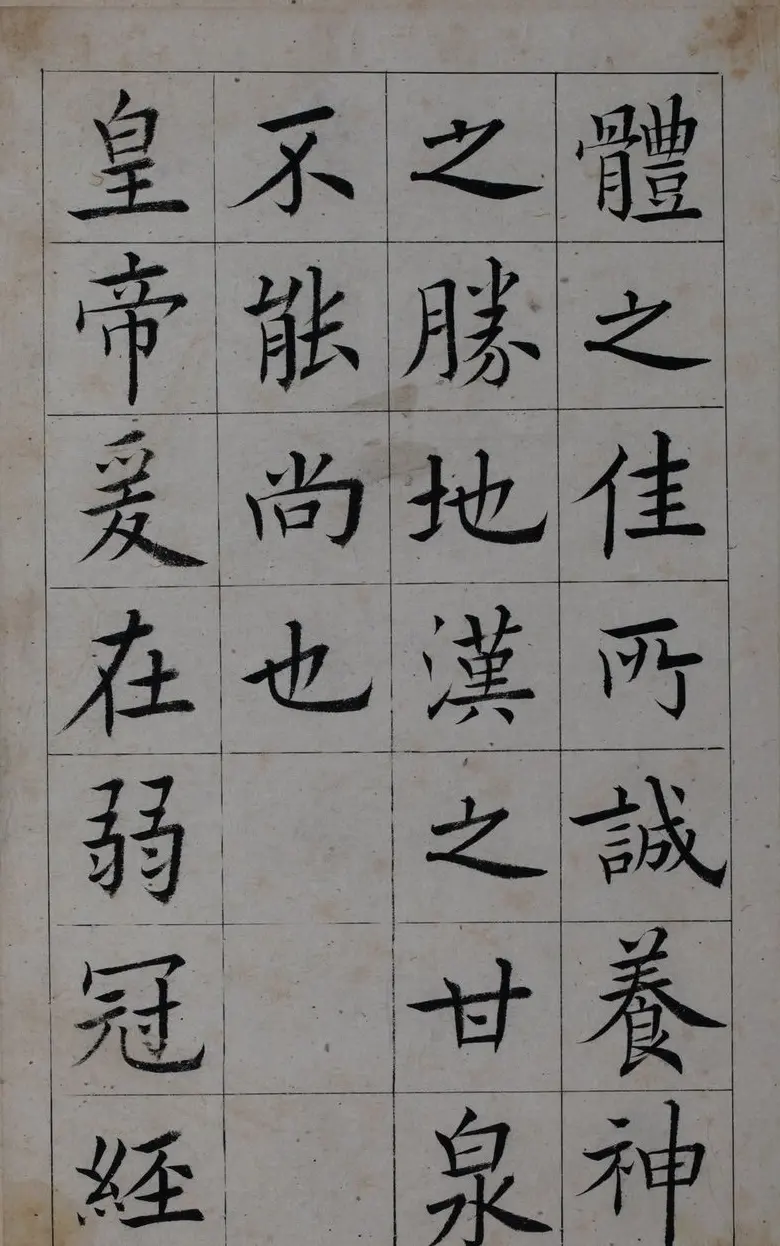 體之佳所誠養神
之勝地漢之甘泉
不能尚也
皇帝爰在弱冠經